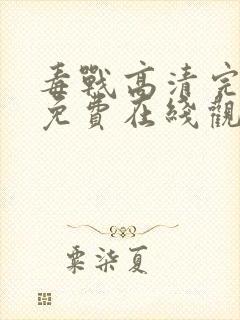 毒戰高清完
免費在綫觀
粟柒夏